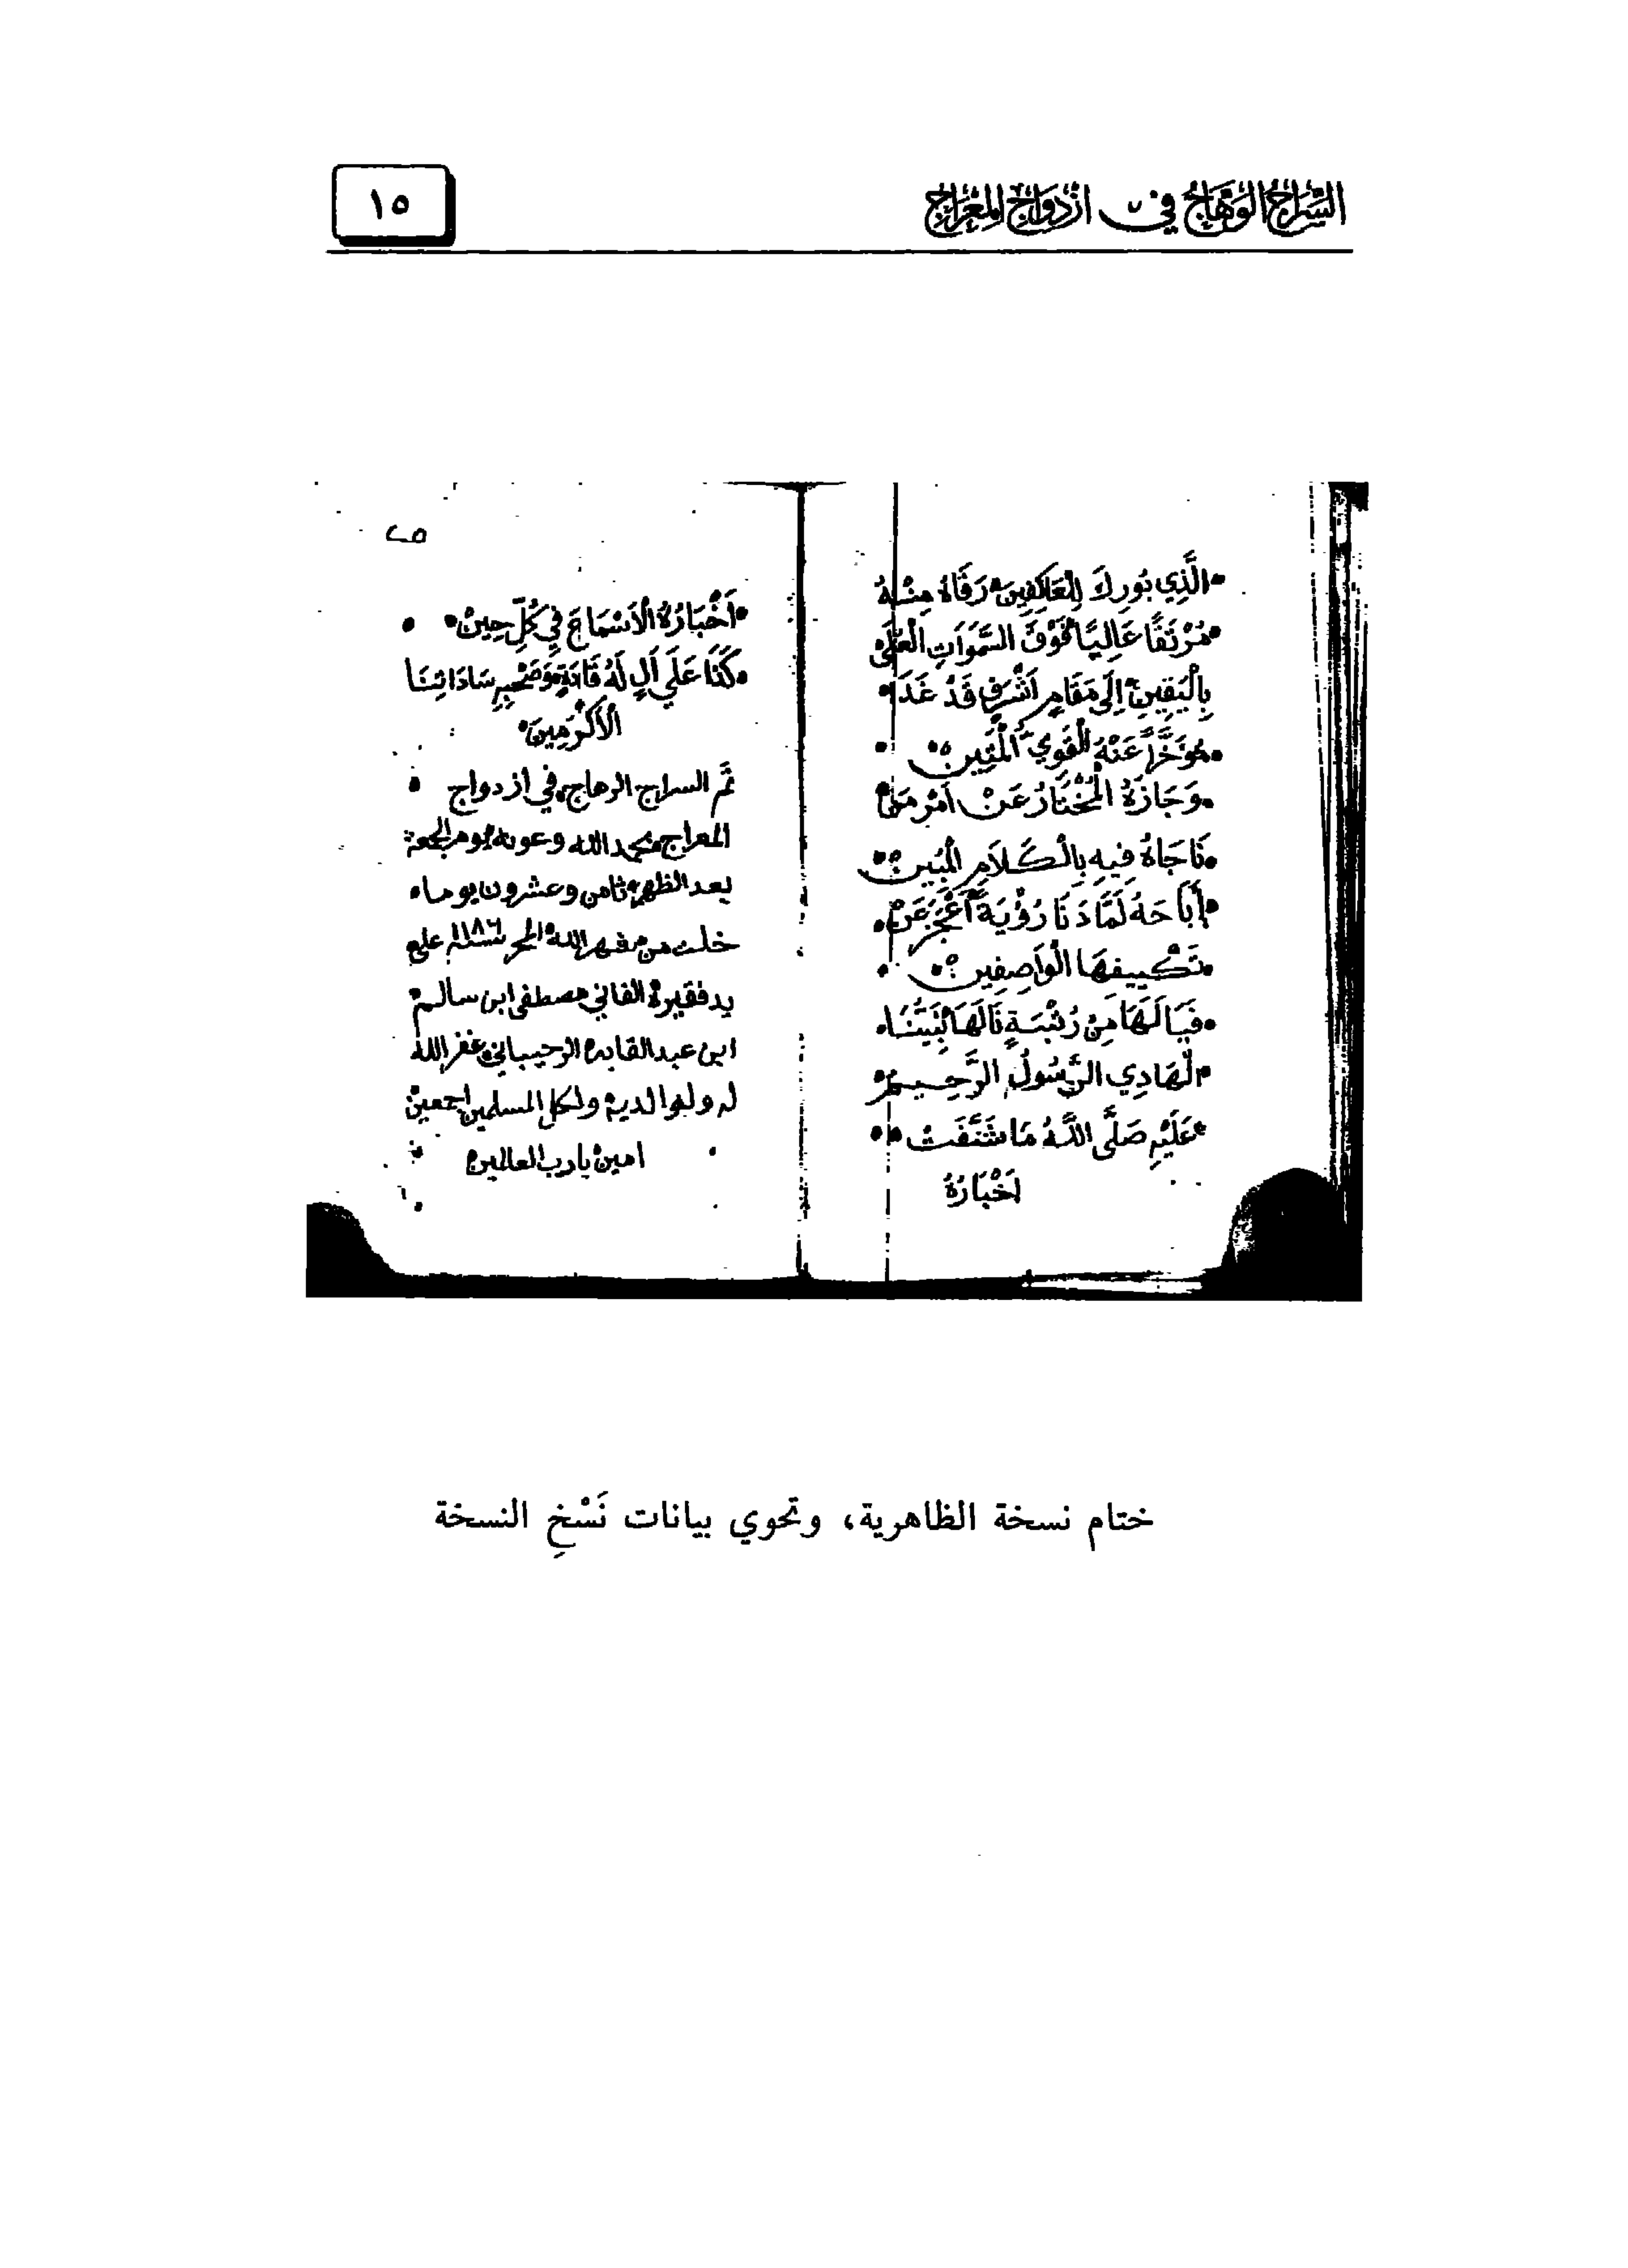 السراج الوهاج في ازدواج المعراج
١٥
الَّذِي بُورِكَ لِلْعَاكِفِينَ رَقَاهُ مِنْهُ
مُرْتَقًا عَالِيًا فَوْقَ السَّمَوَاتِ الْعُلَى
بِالْيَقِينِ إِلَى مَقَامٍ أَشْرَفٍ قَدْ غَدَا
مُؤَخَّرًا عَنْهُ الْقَوِيُّ الْمَتِينُ
وَجَازَهُ الْمُخْتَارُ عَنْ أَمْرِ مَنْ
نَاجَاهُ فِيهِ بِالْكَلَامِ الْمُبِينِ
أَبَاحَهُ لَمَّا دَنَا رُؤْيَةً أَعْجَزَ عَنْ
تَكْيِيفِهَا الْوَاصِفِينَ
فَيَالَهَا مِنْ رُتْبَةٍ نَالَهَا نَبِيُّنَا
الْهَادِي الرَّسُولُ الرَّحِيمُ
عَلَيْهِ صَلَّى اللَّهُ مَا شَنَّفَتْ
أَخْبَارُهُ
٢٥
أَخْبَارُهُ الْأَسْمَاعَ فِي كُلِّ حِينْ
كَذَا عَلَى آلٍ لَهُ قَادَةٍ وَصَحْبِهِ سَادَاتِنَا
الْأَكْرَمِينَ
تَم السراج الوهاج في ازدواج
المعراج بحمد الله وعونه يوم الجمعة
بعد الظهر ثامن وعشرون يوما
خلت من شهر الله المحرم سنة ١١٨٦ على
يد فقيره الفاني مصطفى ابن سالم
ابن عبد القادر الرحيباني غفر الله
له ولوالديه ولكل المسلمين اجمعين
امين يا رب العالمين
ختام نسخة الظاهرية، وتحوي بيانات نَسْخِ النسخة